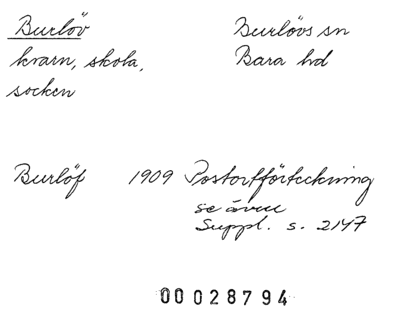 Burlöv Burlövs sn
kvarn, skola, Bara hd
socken
Burlöf 1909 Postortförteckning
se även
Suppl. s. 2147
00028794